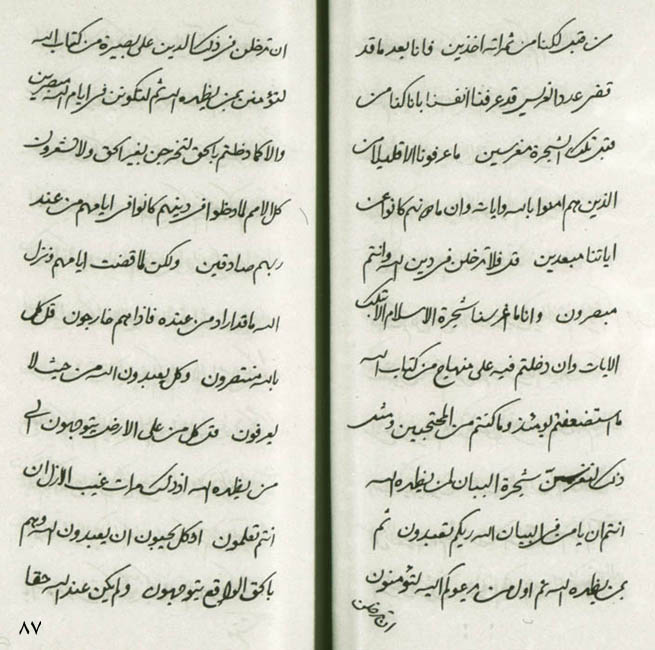 من قبل لكنا من ثمراته اخذين فانا بعد ما قد
قضى عدد الغرس قد عرفنا انفسنا بانا كنا من
قبل تلك الشجرة مغرسين ما عرفونا الا قليلا من
الذين هم امنوا بالله واياته وان ما هم كانوا عن
اياتنا مبعدين قل فلا تدخلن في دين الله وانتم
مبصرون وانا ما اغرسنا شجرة الاسلام الا بتلك
الايات وان دخلتم فيه على منهاج من كتاب الله
ما استضعفتم يومئذ وما كنتم من المحتجبين ومثل
ذلك لنغرسن شجرة البيان لمن يظهره الله
انتم ان يا من في البيان الله ربكم تعبدون ثم
بمن يظهره الله ثم اول من يدعوكم اليه لتؤمنون
ان تدخلن
ان تدخلن في ذلك الدين على بصيرة من كتاب الله
لتؤمنن بمن يظهره الله ثم لتكونن في ايام الله مبصرين
والا كما دخلتم بالحق لتخرجن بغير الحق ولا تشعرون
كل الامم لما دخلوا في دينهم كانوا في ايامهم من عند
ربهم صادقين ولكن لما قضت ايامهم ونزل
الله ما قد اراد من عنده فاذا هم خارجون قل كل
بالله منتصرون وكل يعبدون الله من حيث لا
يعرفون قل كل من على الارض يتوجهون الى
من يظهره الله اذ ذلك مرات غيب الازل ان
انتم تعلمون اذ كل يحبون ان يعبدون الله وهم
بالحق الواقع يتوجهون ولم يكن عند الله حقا
٨٧